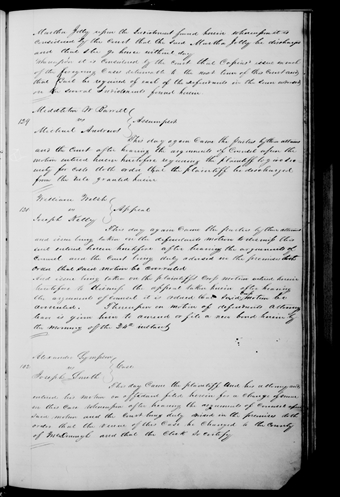 Martha Jolly upon the Indictment found herein whereupon it is
considered by the Court that the said Martha Jolly be discharged
and that she go hence without day
Whereupon it is considered by the Court that Capias issue in each
of the foregoing Cases returnable to the next term of this Court and
that bail be required of each of the defendants in the sum
on the several Indictments found herein
Middleton W
129 vs Assumpsit
Michael Andrews
This day again Came the parties by their attorneys
and the Court after hearing the arguments of Counsel upon the
motion entered herein heretofore requiring the plaintiff to give secu-
rity for costs doth order that the plaintiff be discharged
from the rule granted herein
William Welch
131 vs Appeal
Joseph Kelley
This day again Came the parties by their attorneys
and issue being taken on the defendants motion to dismiss this
suit entered herein heretofore after hearing the arguments of
Counsel and the Court being duly advised in the premises doth
order that said motion be overruled
And issue being taken on the plaintiffs motion entered herein
heretofore to dismiss the appeal taken herein after hearing
the arguments of Counsel it is ordered that said motion be
overruled. Whereupon on motion of defendants attorney
leave is given him to amend or file a new bond herein by
the morning of the instant
Alexander
132 vs Case
Joseph Smith
This day Came the plaintiff and his attorney and
entered his motion on affidavit filed herein for a change of venue
in this Case whereupon after hearing the arguments of Counsel upon
said motion and the Court being duly advised in the premises doth
order that the venue of this Case be Changed to the County
of McDonough and that the Clerk so Certify